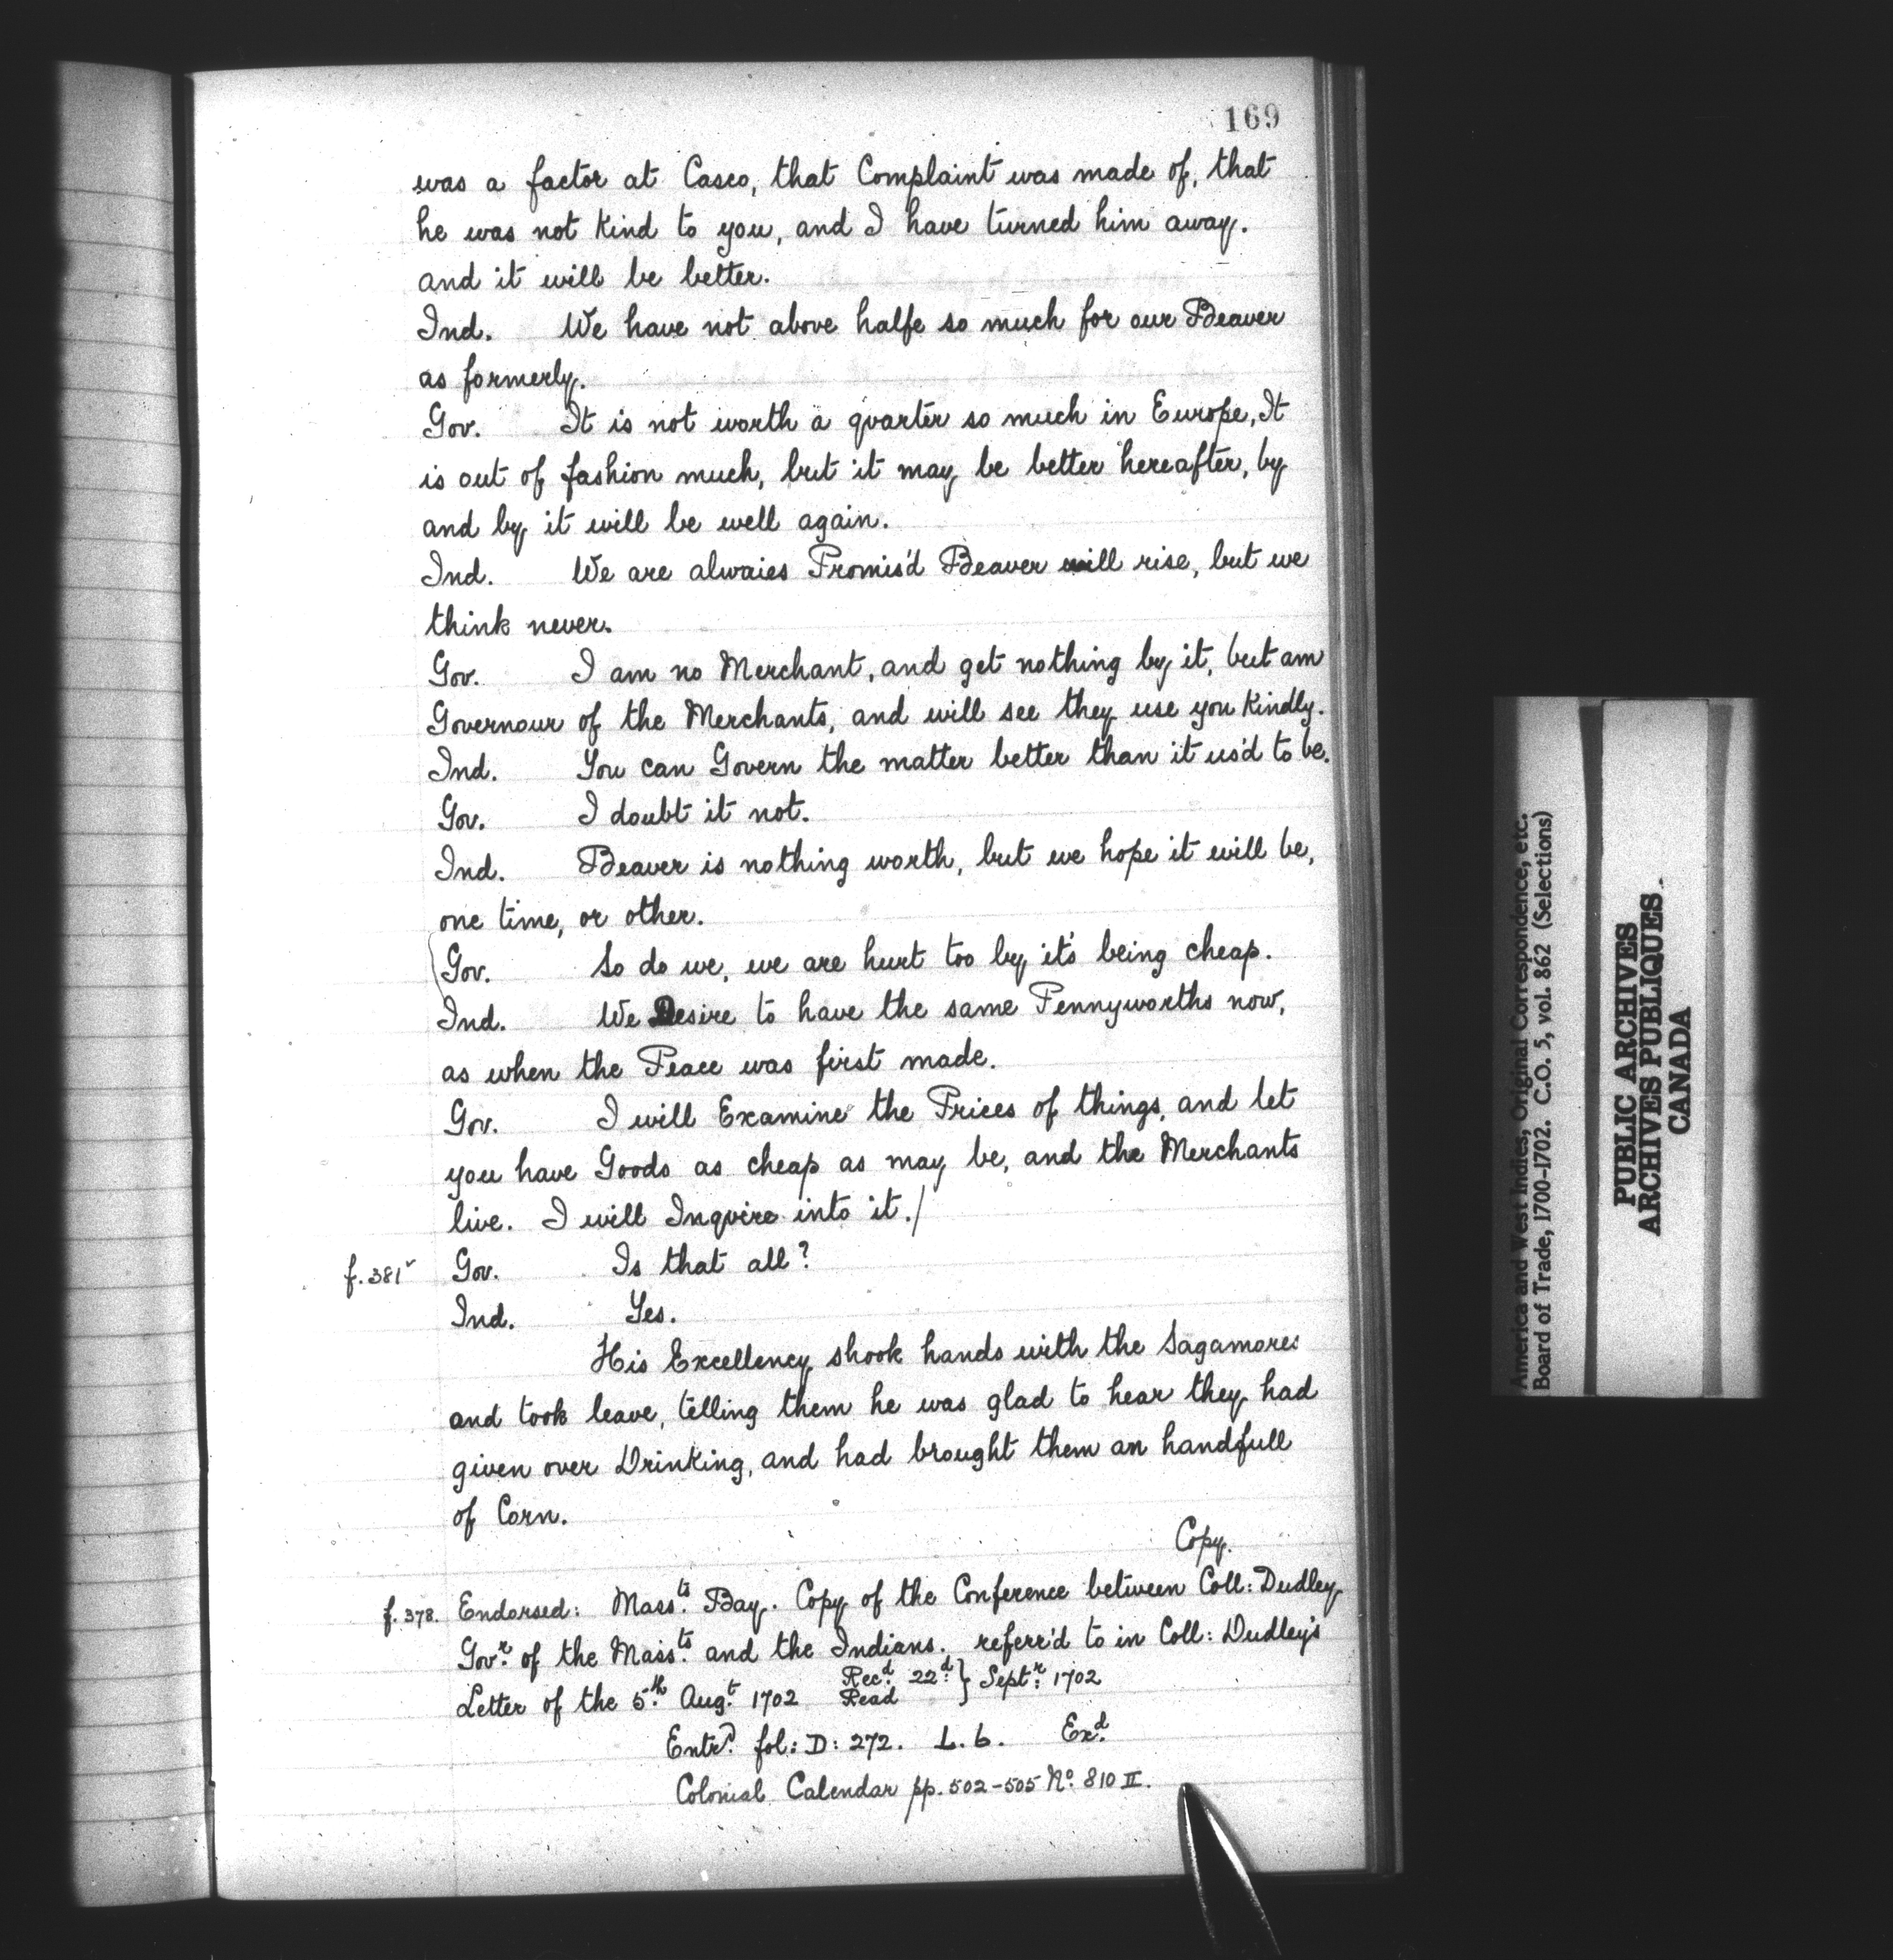 169
was a factor at Casco, that Complaint was made of, that
he was not Kind to you, and I have turned him away.
and it will be better.
Ind. We have not above halfe so much for our Beaver
as formerly.
Gov. It is not worth a quarter so much in Europe, It
is out of fashion much, but it may be better hereafter, by
and by it will be well again.
Ind. We are alwaies Promis'd Beaver will rise, but we
think never.
Gov. I am no Merchant, and get nothing by it, but am
Governour of the Merchants, and will see they use you Kindly.
Ind. You can Govern the matter better than it us'd to be.
Gov. I doubt it not.
Ind. Beaver is nothing worth, but we hope it will be,
one time, or other.
Gov. So do we, we are hurt too by it's being cheap.
Ind. We Desire to have the same Pennyworths now,
as when the Peace was first made.
Gov. I will Examine the Prices of things, and let
you have Goods as cheap as may be, and the Merchants
live. I will Inquire into it./
f.381v Gov. Is that all?
Ind. Yes.
His Excellency shook hands with the Sagamores
and took leave, telling them he was glad to hear they had
given over Drinking, and had brought them an handfull
of Corn.
Copy.
f.378. Endorsed: Mass.ts Bay. Copy of the Conference between Coll: Dudley
Gov.r of the Mass.ts and the Indians. referr'd to in Coll: Dudley's
Letter of the 5.th Aug.t 1702 Rec.d 22.d } Sept.r 1702
Read
Entr.d fol: D: 272. L. b. Ex.d
Colonial Calendar pp. 502-505 No. 810 II.
America and West Indies, Original Correspondence, etc.
Board of Trade, 1700-1702. C.O. 5, vol. 862 (Selections)
PUBLIC ARCHIVES
ARCHIVES PUBLIQUES
CANADA